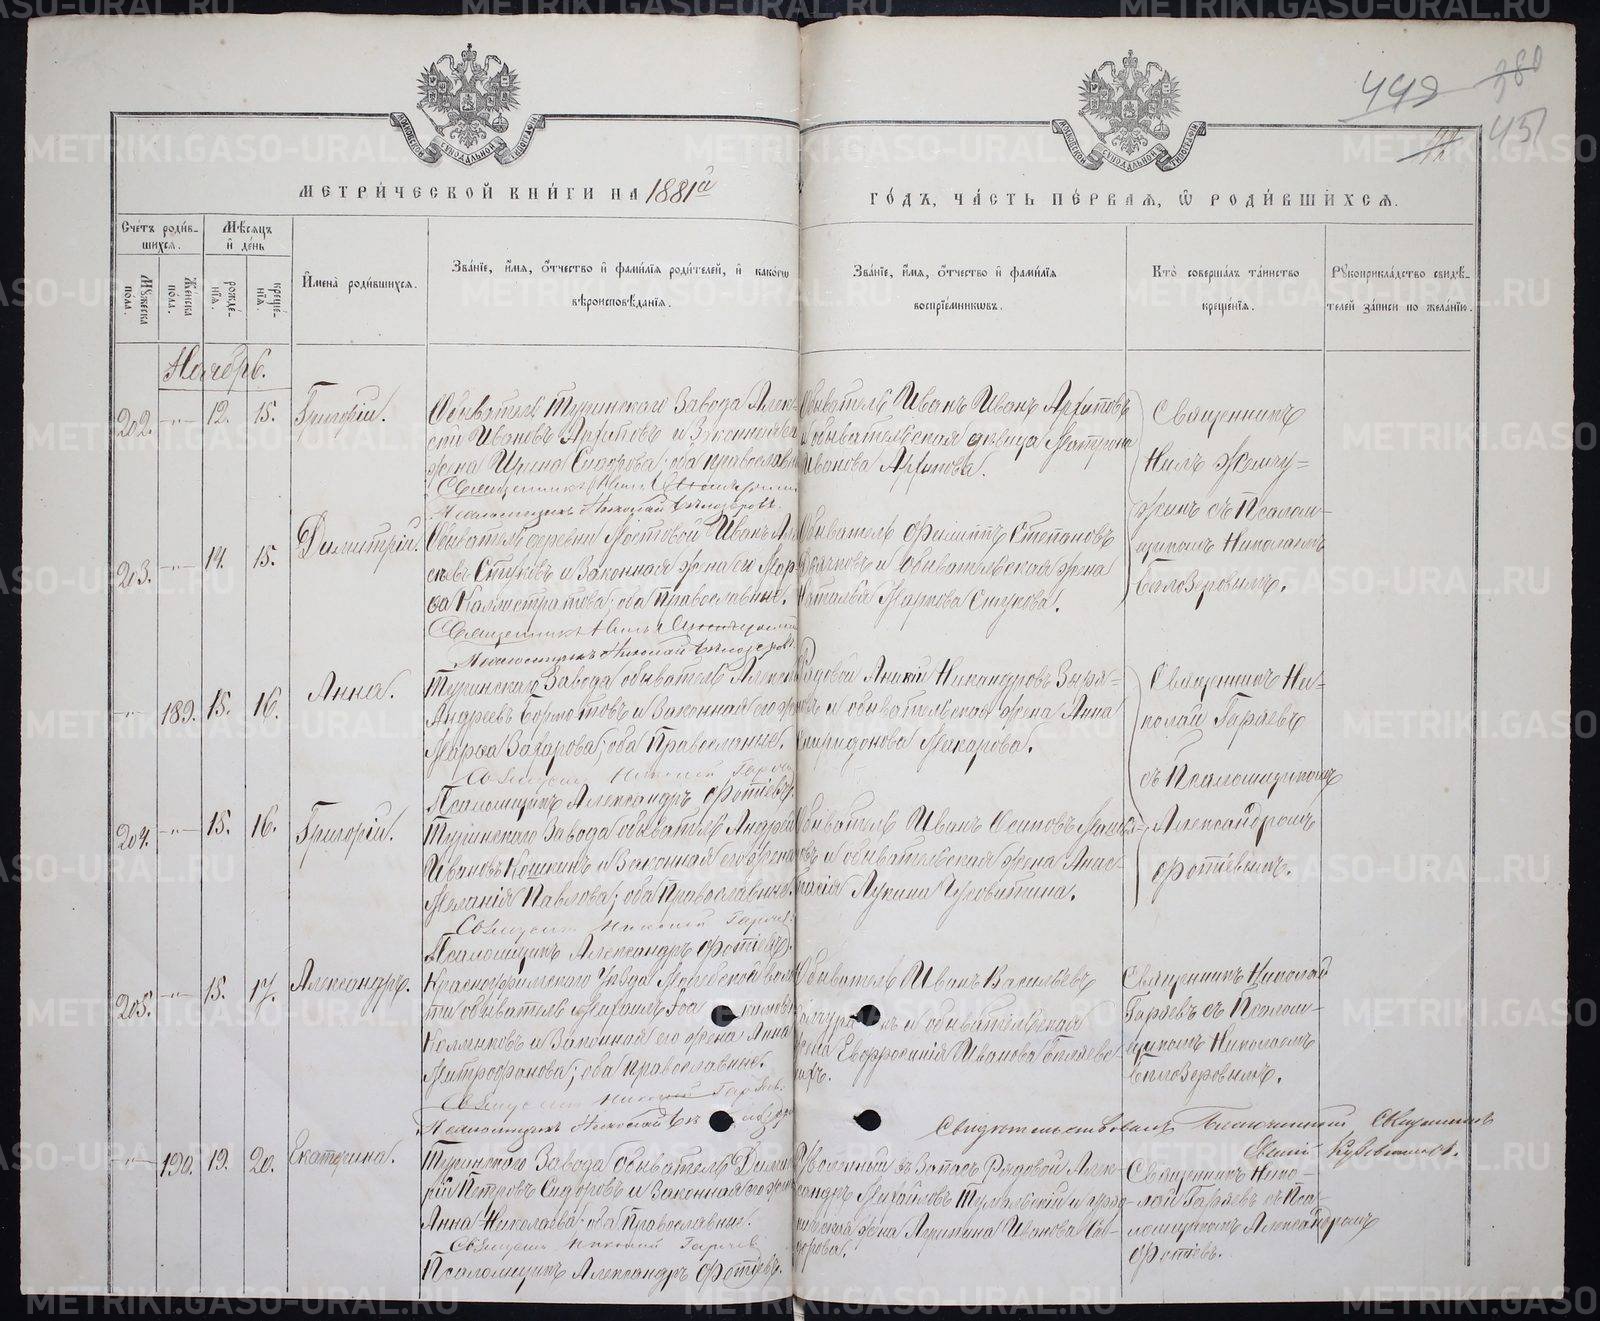 442
380
45
МЕТРИ́ЧЕСКОЙ КНИ́ГИ НА 1881й ГО́ДЪ, ЧА́СТЬ ПЕ́РВАЯ, Ѡ РОДИ́ВШИХСЯ.
Сче́тъ роди́вшихся.
Мѣ́сяцъ и҆ де́нь
Му́жеска по́ла.
Же́нска по́ла.
рожде́нїя.
креще́нїя.
И҆мена̀ роди́вшихся.
Зва́нїе, и҆́мя, ѻ҆́тчество и҆ фами́лїя роди́телей, и҆ како́гѡ вѣроисповѣ́данїя.
Зва́нїе, и҆́мя, ѻ҆́тчество и҆ фами́лїя воспрїе́мникѡвъ.
Кто̀ соверша́лъ та́инство креще́нїя.
Рꙋкоприкла́дство свидѣ́телей за́писи по жела́нїю.
Ноябрь.
202. —"— 12. 15. Григорій.
Обыватель Туринскаго Завода Алек-
сѣй Ивановъ Архиповъ и Законная его
жена Ирина Сидорова; оба православные
Священникъ Нилъ
Псаломщикъ Николай Бѣлозеровъ.
Обыватель Иванъ Иванъ Архиповъ
и обывательская дѣвица Матрона
Иванова Архипова.
Священникъ
Нилъ Жемчу-
жинъ съ Псалом-
щикомъ Николаемъ
Бѣлозеровымъ.
203. —"— 14. 15. Димитрій.
Обыватель деревни Мостовой Иванъ
Стуковъ и Законная жена его Мар-
ѳа Каллистратова; оба Православные.
Священникъ Нилъ
Псаломщикъ Николай Бѣлозеровъ
Обыватель Филиппъ Степановъ
и обывательская жена
Наталья Маркова Стукова.
—"— 189. 15. 16. Анна.
Туринскаго Завода обыватель Алексѣй
Андреевъ и Законная его жена
Марѳа Захарова; оба Православные.
Священникъ Николай Гаряевъ
Псаломщикъ Александръ Фотіевъ.
Рядовой Аникій Никандровъ Зыря-
новъ и обывательская жена Анна
Спиридонова Макарова.
Священникъ Ни-
колай Гаряевъ
съ Псаломщикомъ
Александромъ
Фотіевымъ.
204. —"— 15. 16. Григорій.
Туринскаго Завода обыватель Андрей
Ивановъ Кошкинъ и Законная его жена
Меланія Павлова; оба Православные.
Священникъ Николай Гаряевъ
Псаломщикъ Александръ Фотіевъ.
Обыватель Иванъ Осиповъ
и обывательская жена Анас-
тасія Лукина
205. —"— 15. 17. Александръ.
Красноуфимскаго Уѣзда волос-
ти обыватель Михаилъ
и Законная его жена Анна
Митрофанова; оба православные.
Священникъ Николай Гаряевъ.
Псаломщикъ Николай Бѣлозеровъ
Обыватель Иванъ Васильевъ
и обывательская
жена Евфросинія Иванова
Священникъ Николай
Гаряевъ съ Псалом-
щикомъ Николаемъ
Бѣлозеровымъ.
Свидѣтельствовалъ Благочинный, Священникъ
Евгеній
—"— 190. 19. 20. Екатерина.
Туринскаго Завода обыватель Димит-
рій Петровъ Сидоровъ и Законная его жена
Анна Николаева; оба Православные.
Священникъ Николай Гаряевъ
Псаломщикъ Александръ Фотіевъ.
Уволенный въ Запасъ Рядовой Алек-
сандръ Михайловъ и
жена Агрипина Иванова
Священникъ Нико-
лай Гаряевъ съ Пса-
ломщикомъ Александромъ
Фотіевъ.
METRIKI.GASO-URAL.RU